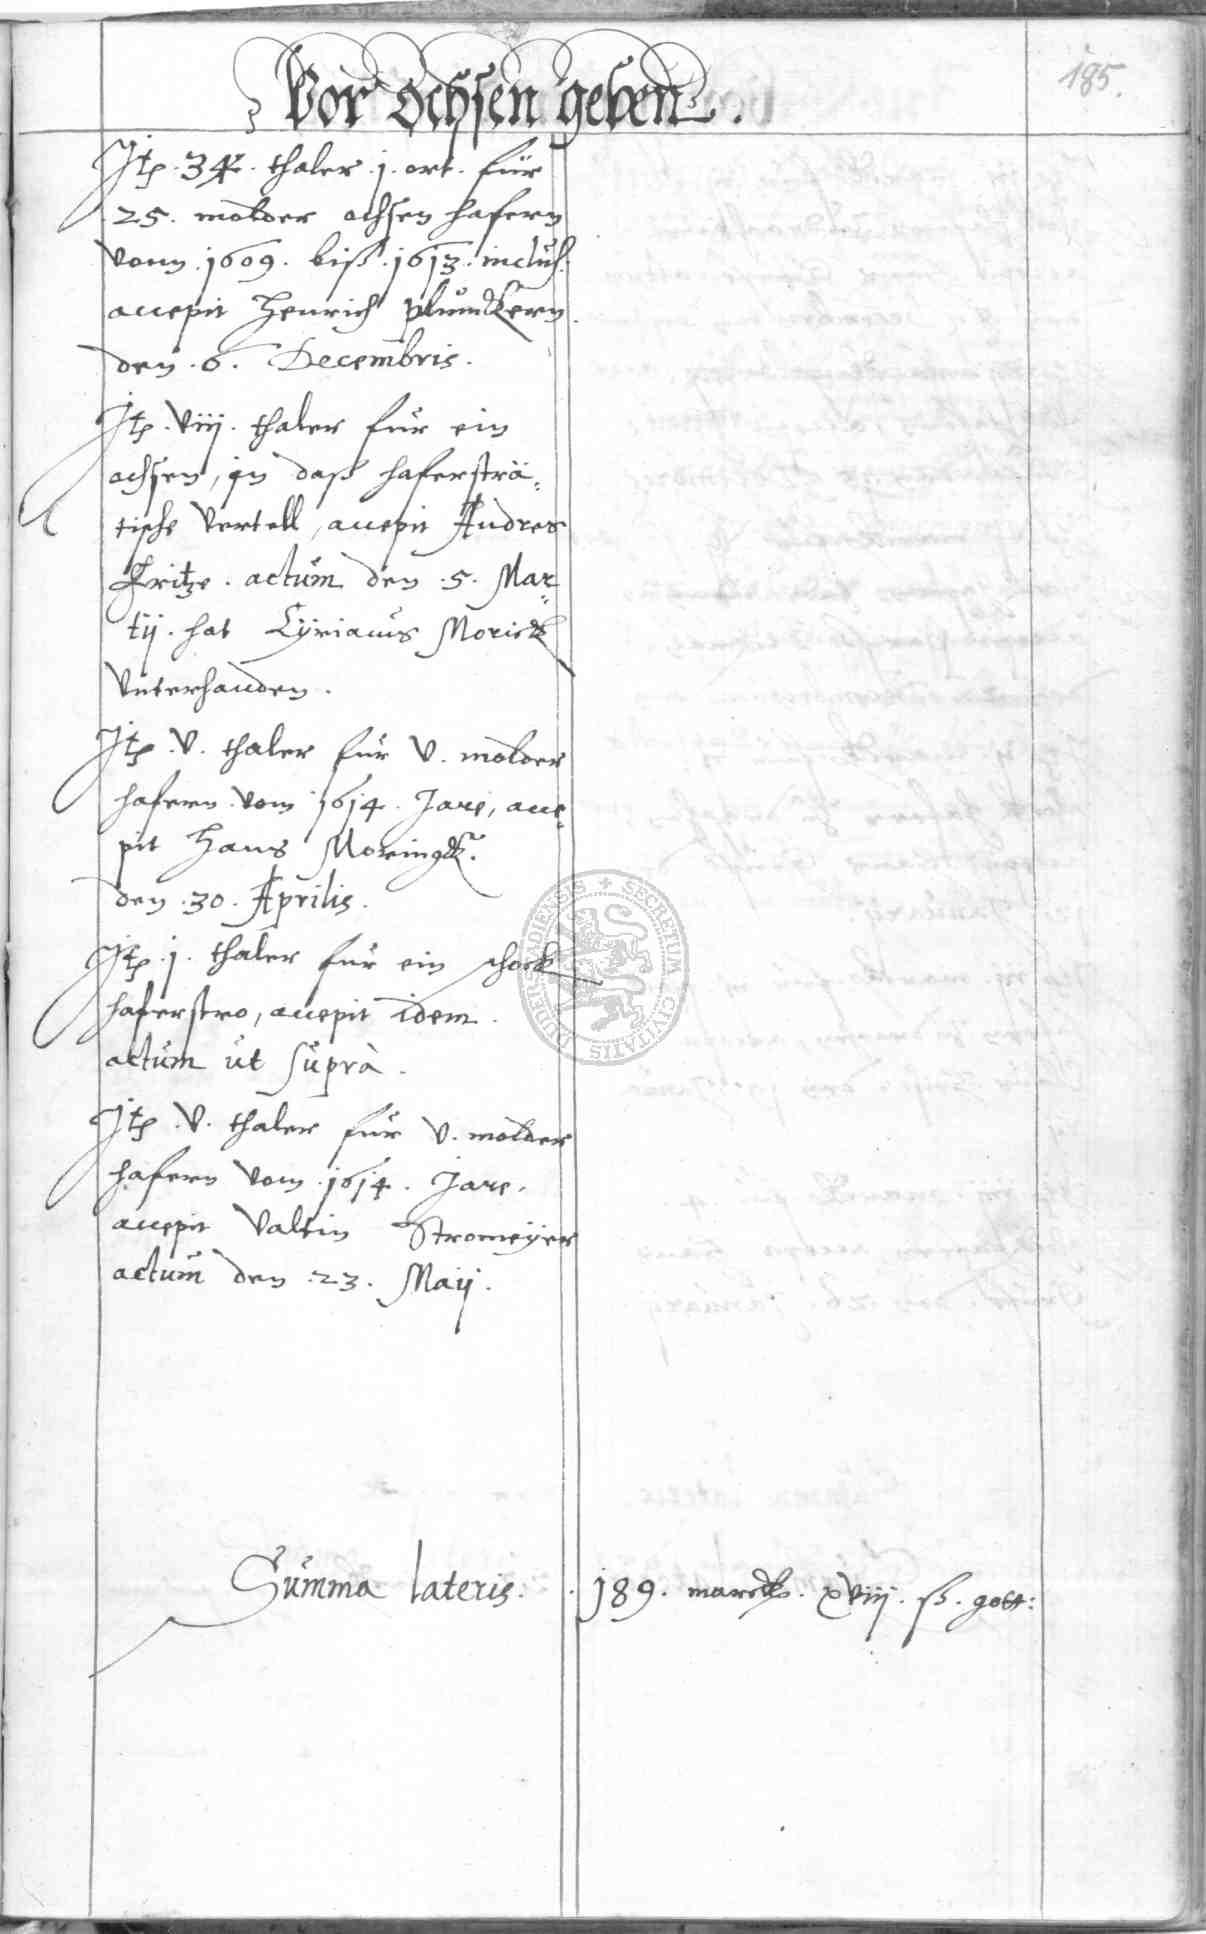 185.
Vor Ochsen geben.
Jtp. 34. thaler .j. ort. für
25. molder ochsen hafern
vonn .1609. biß .1613. inclus.
accepit Henrich plümckern.
den .6. Decembris.
Jtp. viij. thaler für ein
ochsen, in daß haferströ„
tische vertell, accepit Andres
Fritze. actum den .5. Mar„
tij. hat Cyriacus Morick
unterhanden.
Jtp. v. thaler für v. molder
hafern vom 1614. Jare, acce„
pit Hans Moringk.
den .30. Aprilis.
Jtp .j. thaler für ein schock
haferstro, accepit idem.
actum ut suprà.
Jtp. v. thaler für v. molder
hafern vom .1614. Jare.
accepit Valtin Stromeÿer
actum den .23. Maij.
SECRETUM CIVITATIS DUDERSTADIENSIS
Summa lateris. 189. marck. xviij. ß. gott: